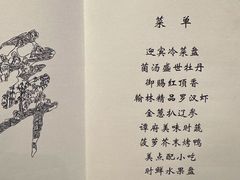 菜单
迎宾冷菜盘
菌汤盛世牡丹
御赐红顶香
翰林精品罗汉虾
金葱扒辽参
谭府美味时蔬
菠萝荞木烤鸭
美点配小吃
时鲜水果盘